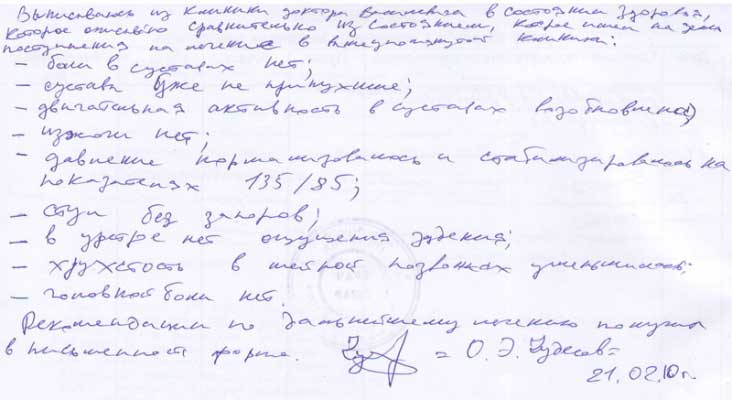 Выписываюсь из клиники доктора в состоянии здоровья,
которое описываю сравнительно из состоянием, которое имел на день
поступления на лечение в вышеупомянутой клинике:
- боли в суставах нет;
- сустава уже не припухшие;
- двигательная активность в суставах возобновлена;
- изжоги нет;
- давление нормализовалось и стабилизировалось на
показателях 135/85;
- стул без запоров;
- в уретре нет ощущения зудения;
- хрухстость в шейной позвонках уменьшилась;
- головной боли нет.
Рекомендации по дальнейшему лечению получил
в письменной форме. = О. Э. Чудесов =
21.02.10 г.